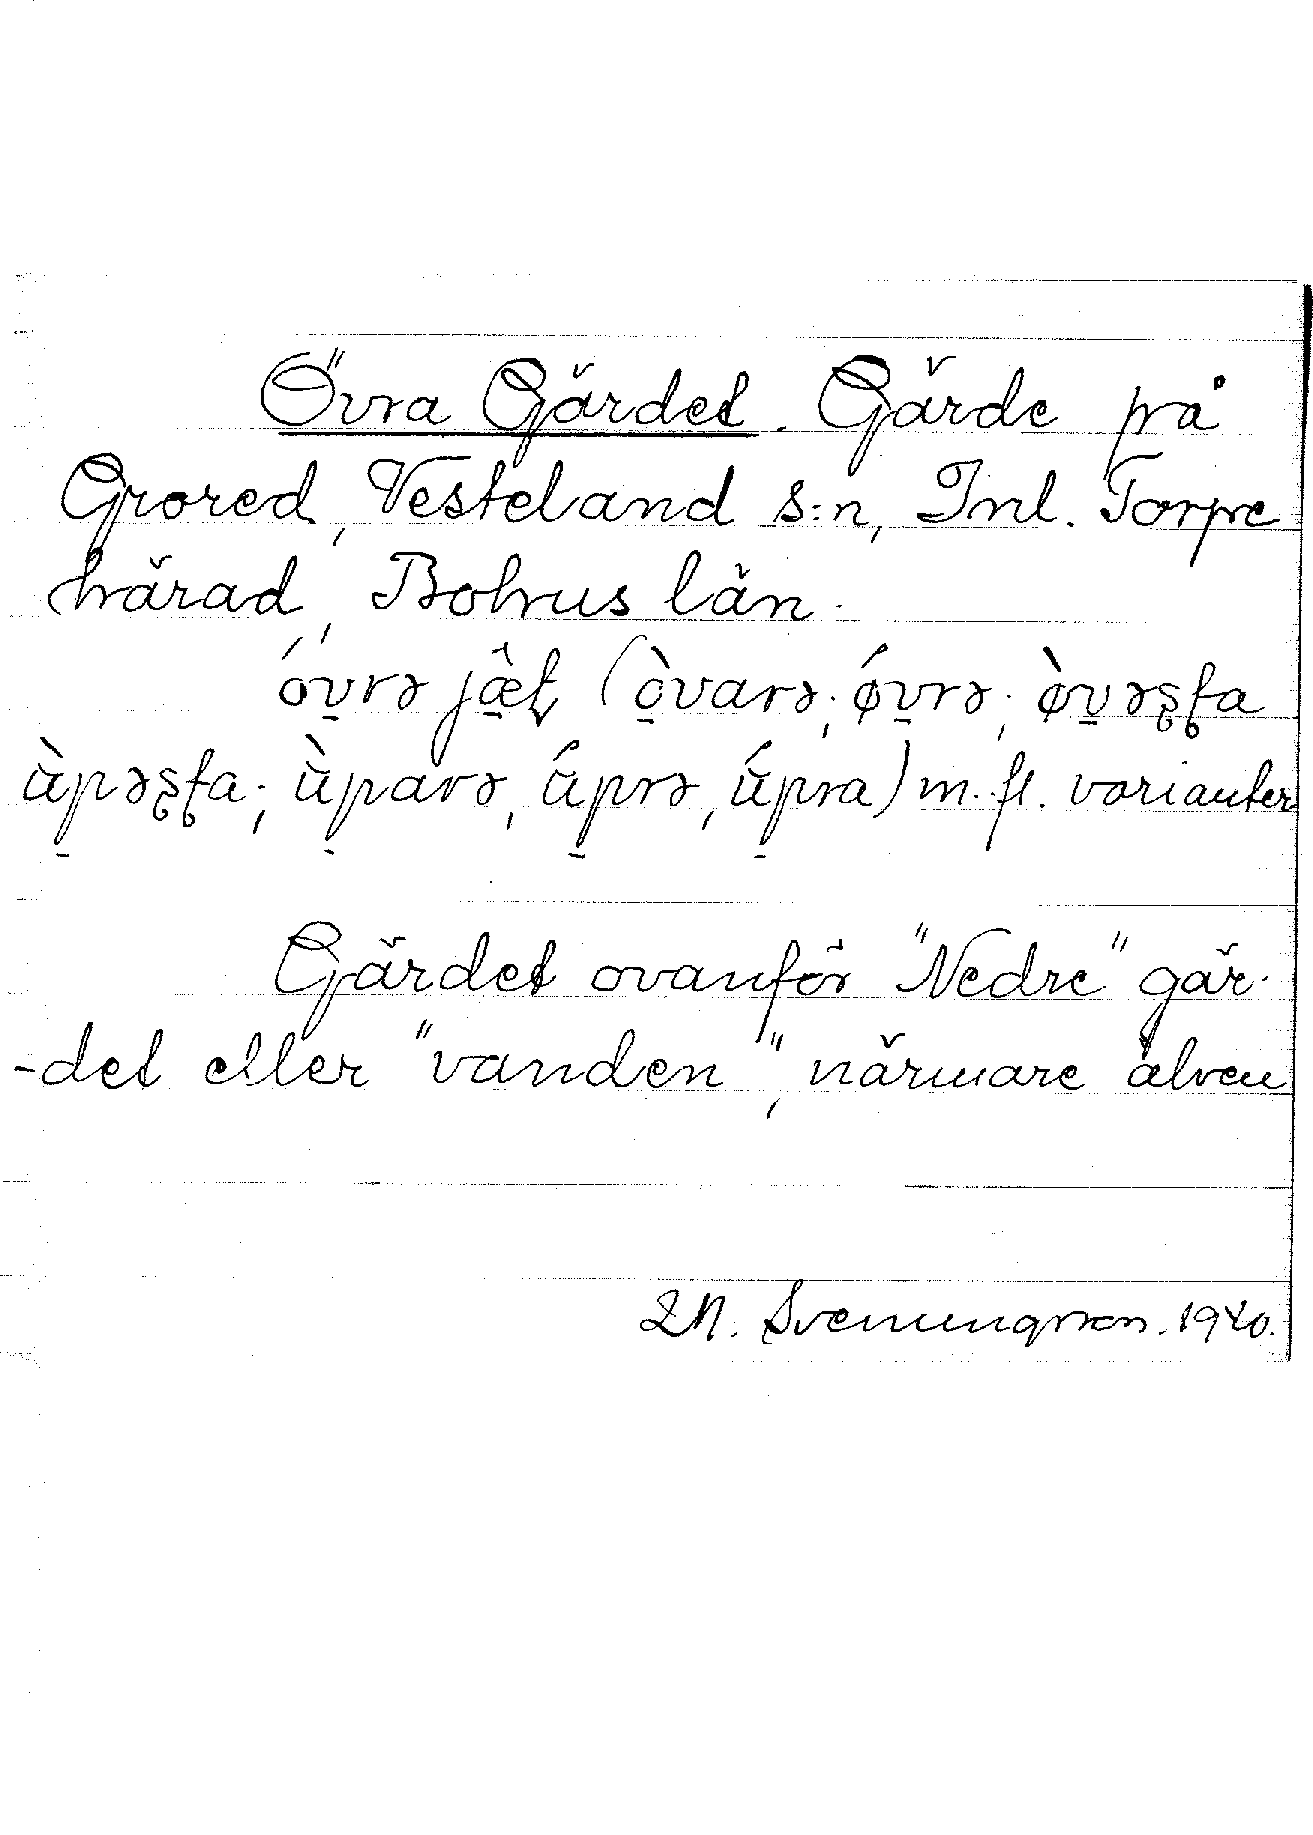 Övra Gärdet. Gärde på
Grored, Vesteland s:n, Inl. Torpe
härad, Bohus län.
óvrə jæ̂ʈ (òvarə; ǿvrə; ø̀vəʂʈa
ùpəʂʈa; ùparə, úprə, úpra) m. fl. varianter
Gärdet ovanför "Nedre" gär-
-det eller "vanden", närmare älven
Svenungsson. 1940.